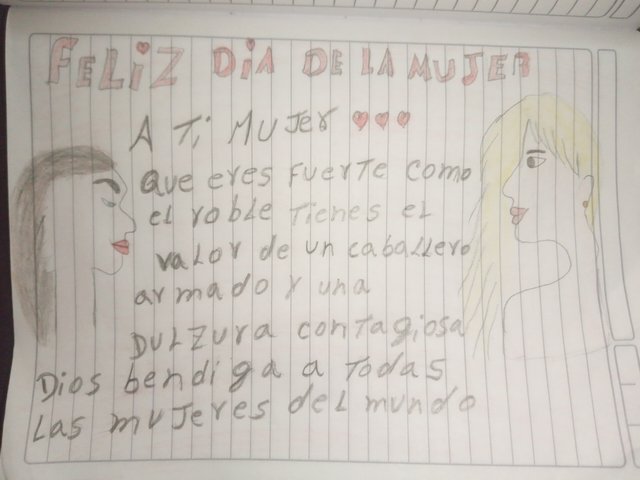 FELIZ DIA DE LA MUJER
A Ti MUJER
QUE ERES FUERTE COMO
EL ROBLE TIENES EL
VALOR DE UN CABALLERO
ARMADO Y UNA
DULZURA CONTAGIOSA
DIOS BENDIGA A TODAS
LAS MUJERES DEL MUNDO